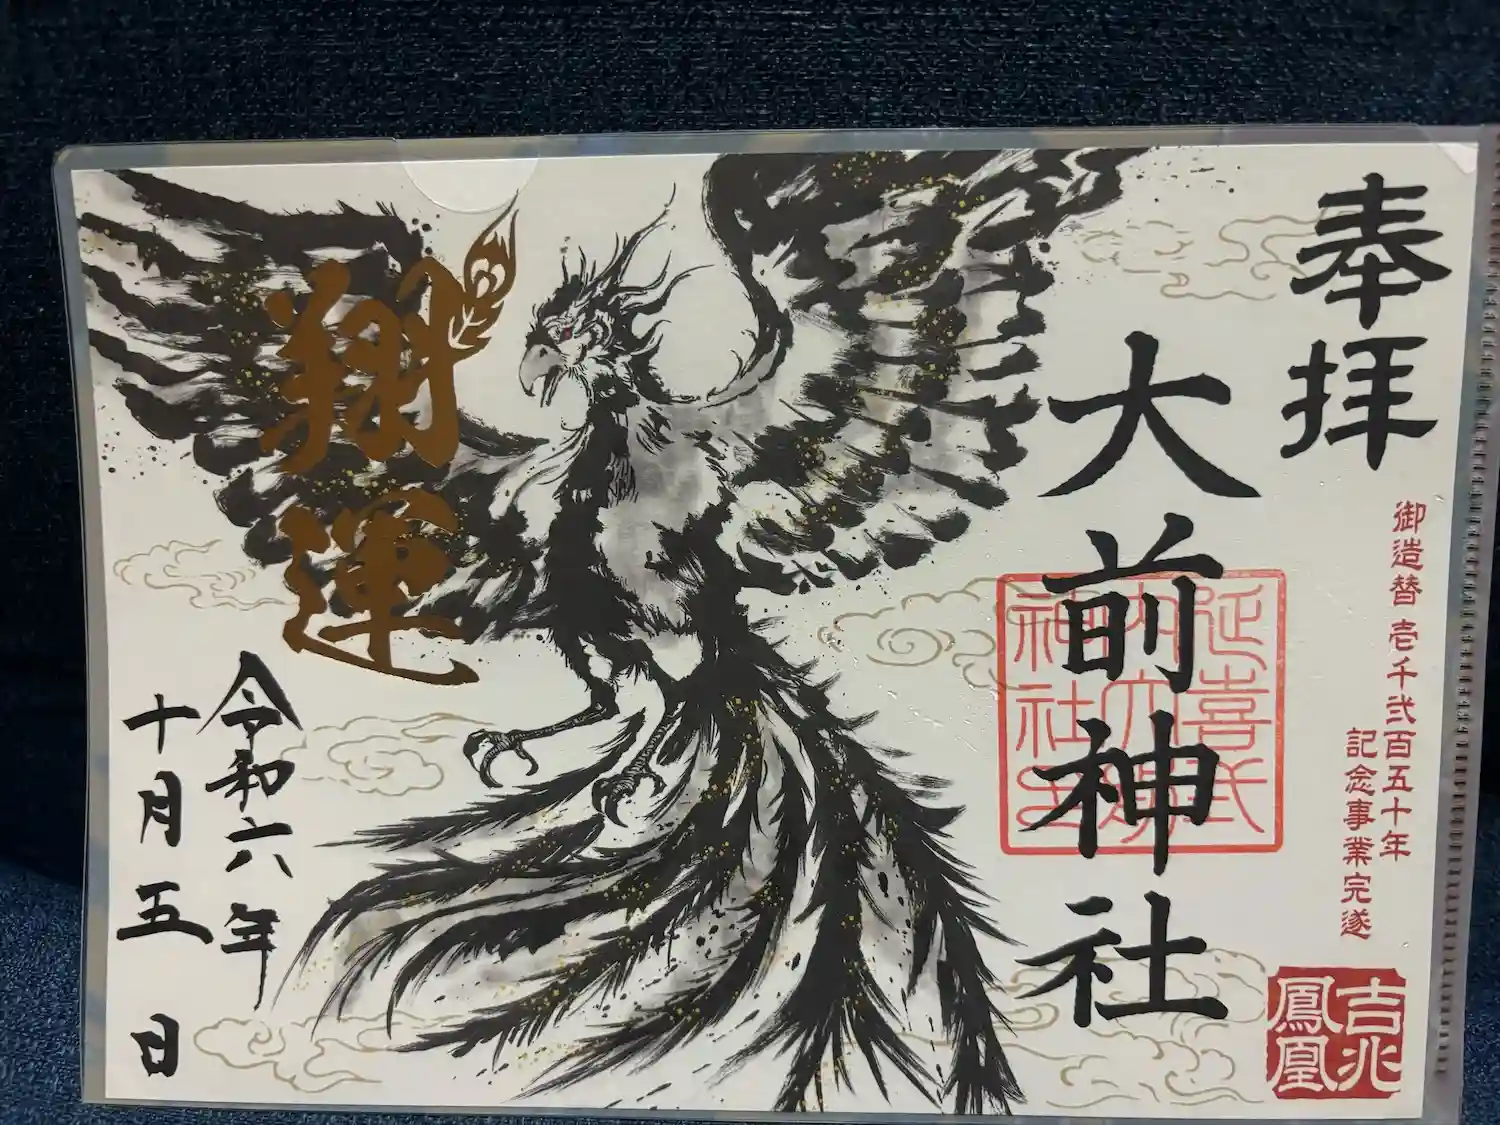 奉拝
御造替 壱千弐百五十年
記念事業完遂
吉兆
鳳凰
大前神社
延喜式
内大前
神社
翔運
令和六年
十月五日